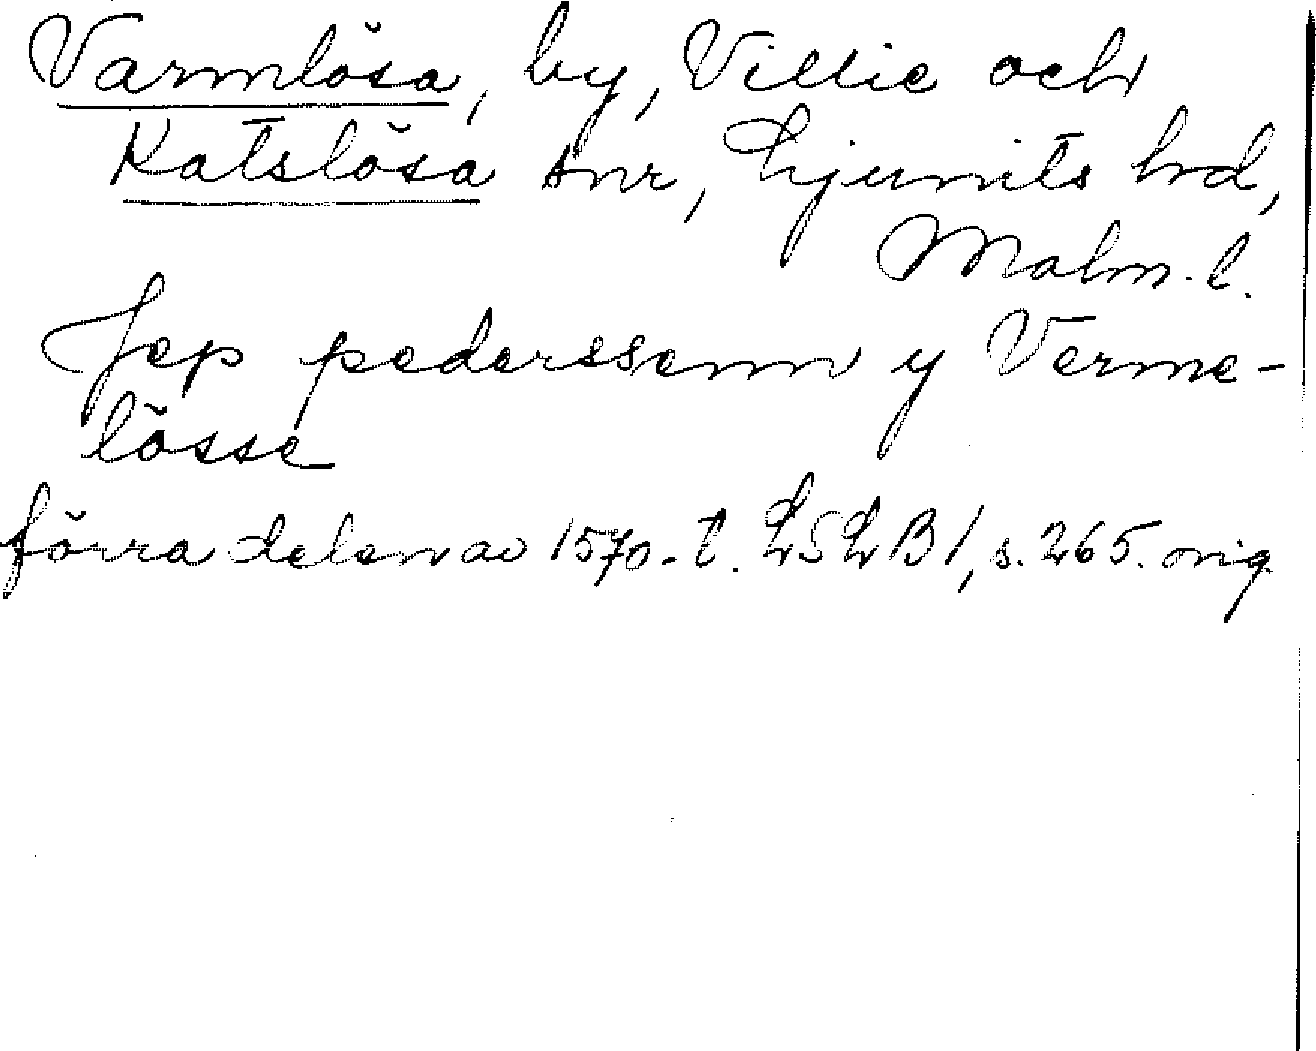 Varmlösa, by, Villie och
Katslösa snr, Ljunits hd,
Malm. l.
Jep pederssenn y Verme-
lösse
förra delen av 1570-t. LSLB1, s. 265. orig